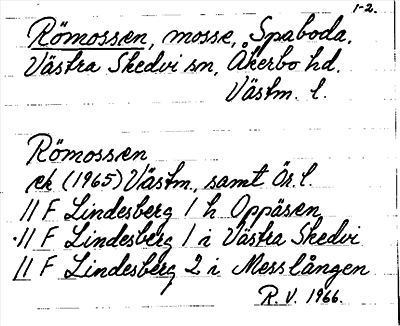 1-2.
Römossen, mosse, Spaboda.
Västra Skedvi sn, Åkerbo hd.
Västm. l.
Römossen
ek (1965) Västm., samt Ör. l.
11 F Lindesberg 1 h Oppåsen
11 F Lindesberg 1 i Västra Skedvi
11 F Lindesberg 2 i Messlången
R. V. 1966.